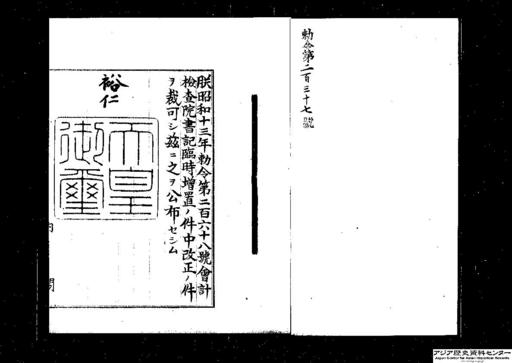 勅令第二百三十七號
朕昭和十三年勅令第二百六十八號會計
檢查院書記臨時增置ノ件中改正ノ件
ヲ裁可シ茲ニ之ヲ公布セシム
裕仁
天皇
御璽
内閣
アジア歴史資料センター
Japan Center for Asian Historical Records